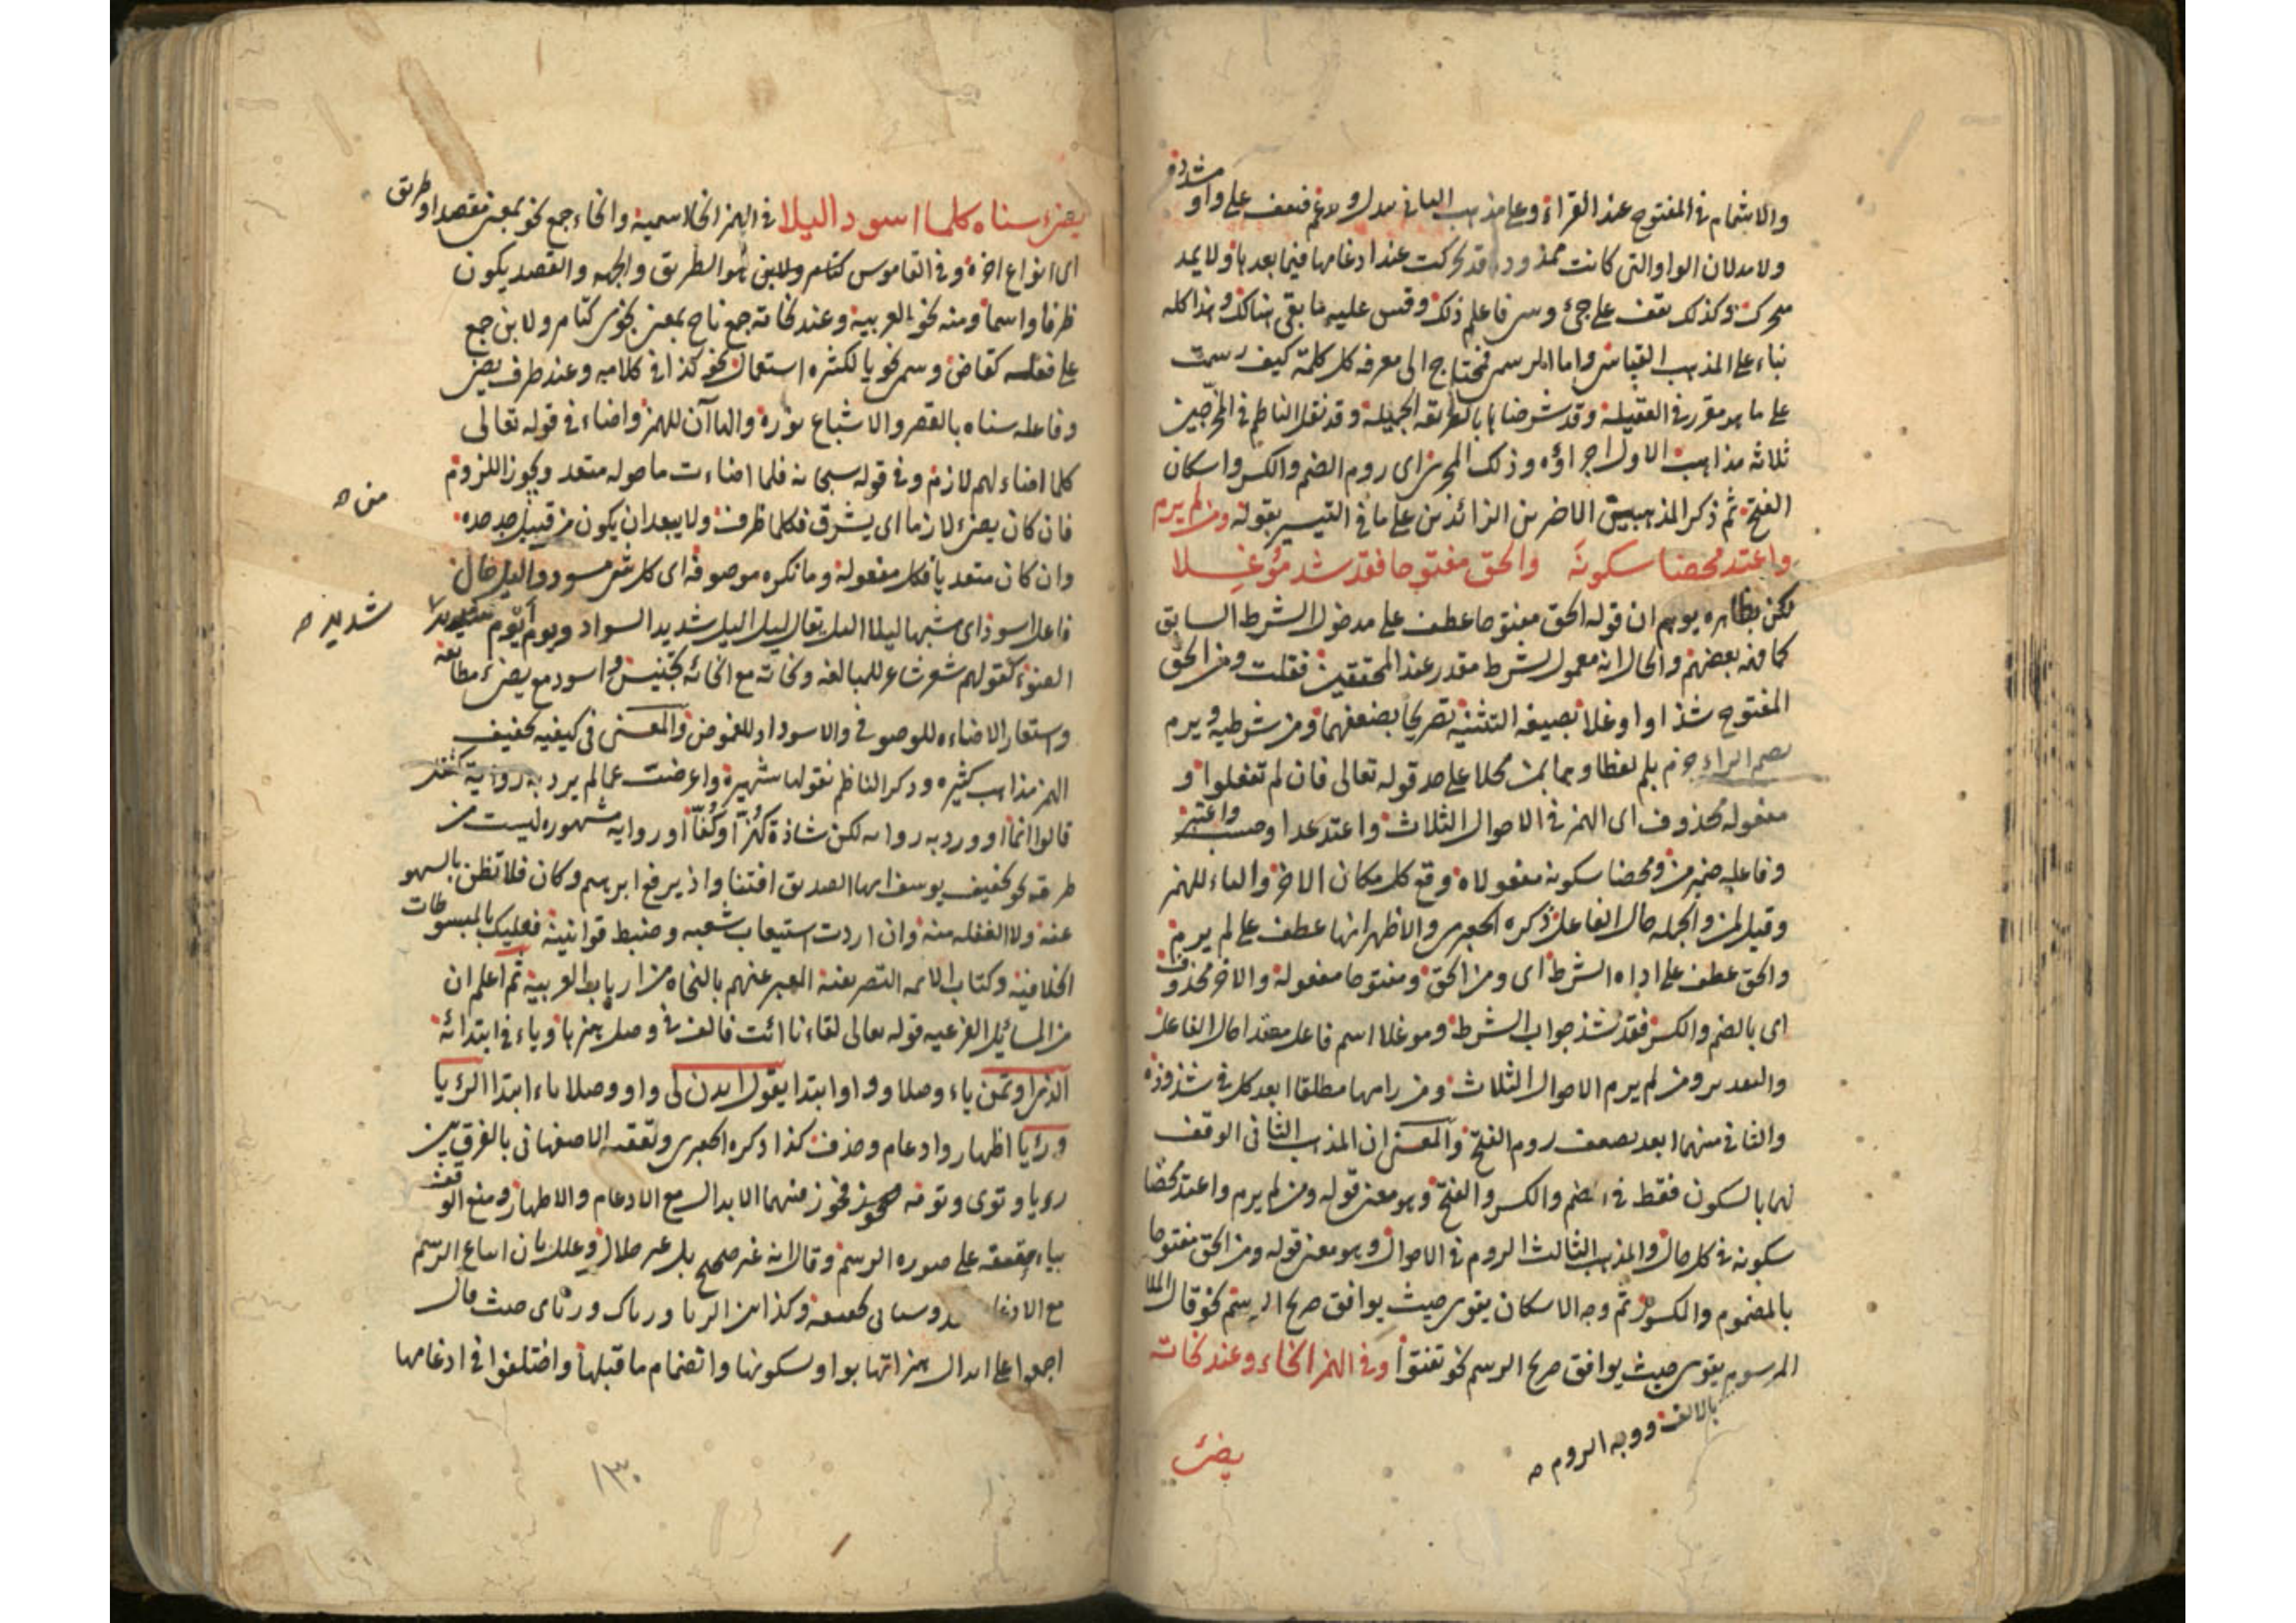 والاشمام في المفتوح عند القراء وعلى مذهب الثاني يبدل ويدغم فتقف على واو مشددة
ولا مد لان الواو التي كانت قد تحركت عند ادغامها فيما بعدها ولا يمد
متحرك وكذلك تقف على جيء وسيء فاعلم ذلك وقس عليه ما بقي هنالك وهذا كله
بناء على المذهب القياسي واما الرسمي فيحتاج الى معرفة كل كلمة كيف رسمت
على ما هو مقرر في العقيلة وقد شرحناها بالطريقة الجميلة وقد نقل الناظم في المخرجين
ثلاثة مذاهب الاول اجراؤه وذلك المحرز اي روم الضم والكسر واسكان
الفتح ثم ذكر المذهبين الاخرين الزائدين على ما في التيسير بقوله ومن لم يرم
واعتد محضا سكونه والحق مفتوحا فقد شذ موغلا
لكن ظاهره يوهم ان قوله الحق مفتوحا عطف على مدخول الشرط السابق
كما فهم بعضهم والحال انه معمول لشرط مقدر عند المحققين فقلت ومن الحق
المفتوح شذا واوغلا بصيغة التثنية تصريحا بضعفهما ومن شرطية ويرم
بضم الراء جزم بلم لفظا وبما بمن محلا على حد قوله تعالى فان لم تفعلوا و
مفعوله محذوف اي الهمز في الاحوال الثلاث واعتد عدا وحسب واعتبر
وفاعله ضمير من ومحضا سكونه مفعولاه وقع كل مكان الاخر والهاء للهمز
وقيل لمن والجملة حال الفاعل ذكره الجعبري والاظهر انها عطف على لم يرم
والحق عطف على اداة الشرط اي ومن الحق ومفتوحا مفعوله والاخر محذوف
اي بالضم والكسر فقد شذ جواب الشرط وموغلا اسم فاعل مبعدا حال الفاعل
والتقدير ومن لم يرم الاحوال الثلاث ومن رامها مطلقا ابعد كل في شذوذه
والثاني منهما ابعد لضعف روم الفتح والمعنى ان المذهب الثاني الوقف
لهما بالسكون فقط في الضم والكسر والفتح وهو معنى قوله ومن لم يرم واعتد محضا
سكونه في كل حال والمذهب الثالث الروم في الاحوال وهو معنى قوله ومن الحق مفتوحا
بالمضموم والمكسور ثم وجه الاسكان يقوى حيث يوافق صريح الرسم نحو قال الملا
المرسوم يقوى حيث يوافق صريح الرسم نحو تفتؤا وفي الهمز انحاء وعند نحاته
بالالف ووجه الروم صح
يضيء
يضيء سناه كلما اسود اليلا في الهمز الجملة اسمية وانحاء جمع نحو بمعنى مقصد او طريق
اي انواع اخر وفي القاموس كتامر ولابن هو الطريق والجهة والقصد يكون
ظرفا واسما ومنه نحو العربية وعند نحاته جمع ناح بمعنى نحوي كتامر ولابن جمع
على فعلة كقاض وسمي نحويا لكثرة استعمال نحو كذا في كلامه وعند ظرف يضيء
وفاعله سناه بالقصر والاشباع نوره والهاآن للهمز واضاء في قوله تعالى
كلما اضاء لهم لازم وفي قوله سبحانه فلما اضاءت ما حوله متعد ويجوز اللزوم
فان كان يضيء لازما اي يشرق فكلما ظرف ولا يبعد ان يكون من قبيل جد جده
وان كان متعديا فكل مفعوله وما نكرة موصوفة اي كل شيء مسود واليل حال
فاعل اسود اي مشبها ليلا اليل يقال ليل اليل شديد السواد ويوم ايوم
شديد صح
الضوء كقولهم شعر شاعر للمبالغة ونحاته مع انحائه تجنيس واسود مع يضيء مطابقة
واستعار الاضاءة للوضوح والاسوداد للغموض والمعنى في كيفية تخفيف
الهمز مذاهب كثيرة وذكر الناظم نقولها شهيرة واعرضت عما لم يرد به رواية
قالوا انما او ورد به رواية لكن شاذة كهزأ وكفأ او رواية مشهورة ليست من
طرقه نحو تخفيف يوسف ايها الصديق افتنا واذ يرفع ابرهيم وكان فلا تظن بالسهو
عنه ولا الغفلة منه وان اردت استيعاب شعبه وضبط قوانينه فعليك بالمبسوطات
الخلافية وكتاب الائمة التصريفية المعبر عنهم بالنحاة من ارباب العربية ثم اعلم ان
من المسائل الفرعية قوله تعالى لقاءنا ائت فالف في وصل همزها وياء في ابتدائه
الذي اوتمن ياء وصلا وواوا ابتدا يقول ايذن لي واو وصلا ياء ابتدا الرؤيا
ورؤيا اظهار وادغام وحذف كذا ذكره الجعبري وتعقبه الاصفهاني بالفرق بين
رويا وتوى وتويه فجوز منهما الابدال مع الادغام والاظهار ومنع الوقف
بياء خفيفة على صورة الرسم وقال انه غير صحيح بل غير حلال وعلل بان اتباع الرسم
اجمعوا على ابدال همزاتها بواو لسكونها وانضمام ما قبلها واختلفوا في ادغامها
١٣٠